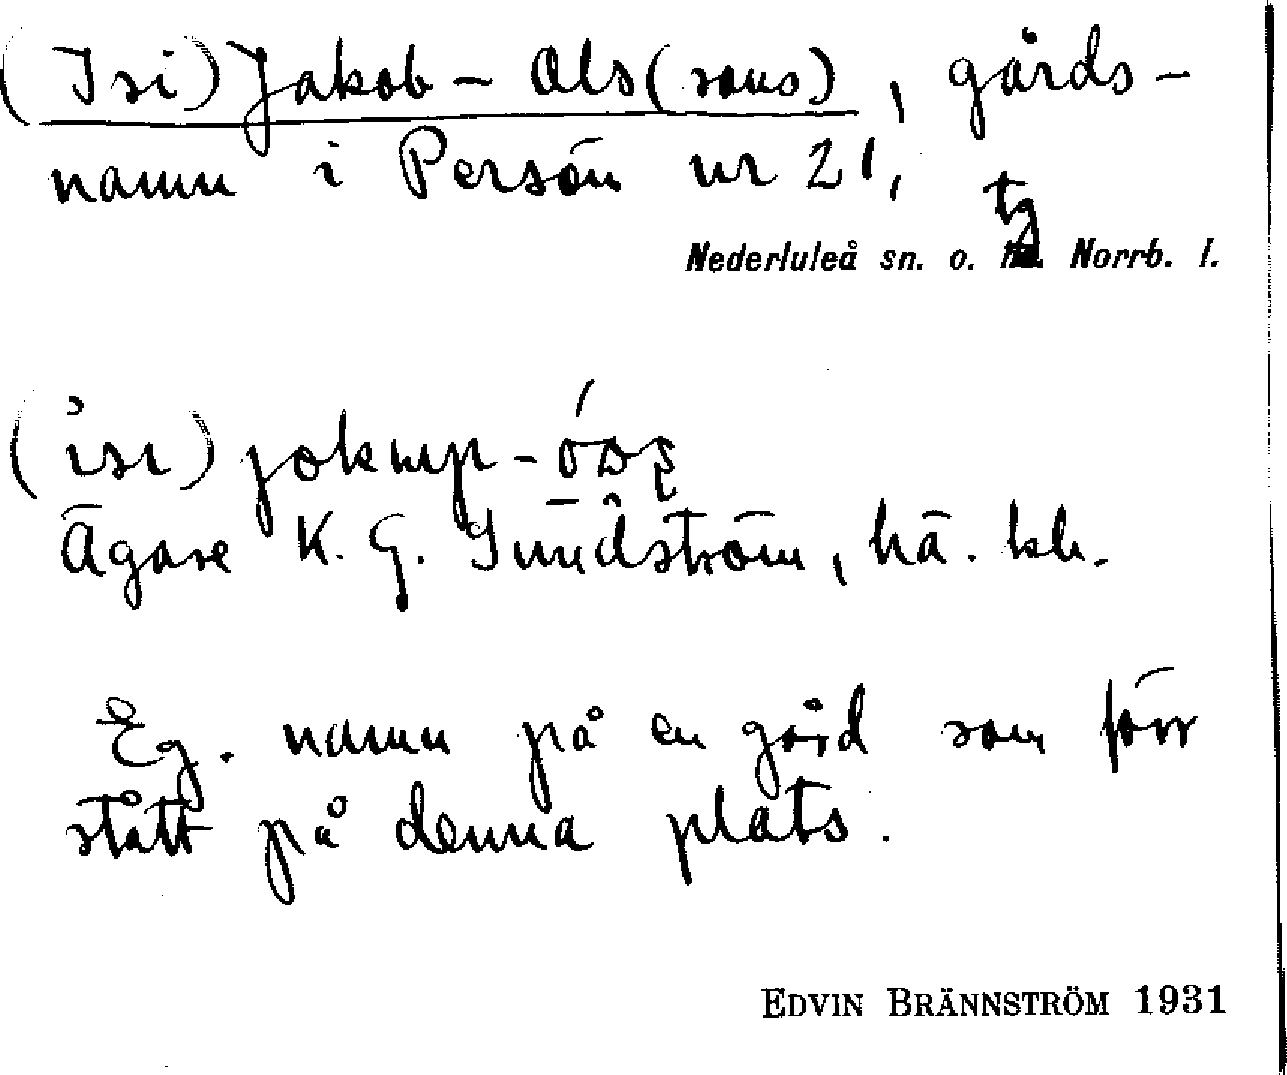 (Isi) Jakob-Ols(sons), gårds-
namn i Persön nr 21,
Nederluleå sn. o. tg Norrb. l.
(isi)
Ägare K. G. Sundström, hä. bl.
Eg. namn på en gård som förr
stått på denna plats.
EDVIN BRÄNNSTRÖM 1931